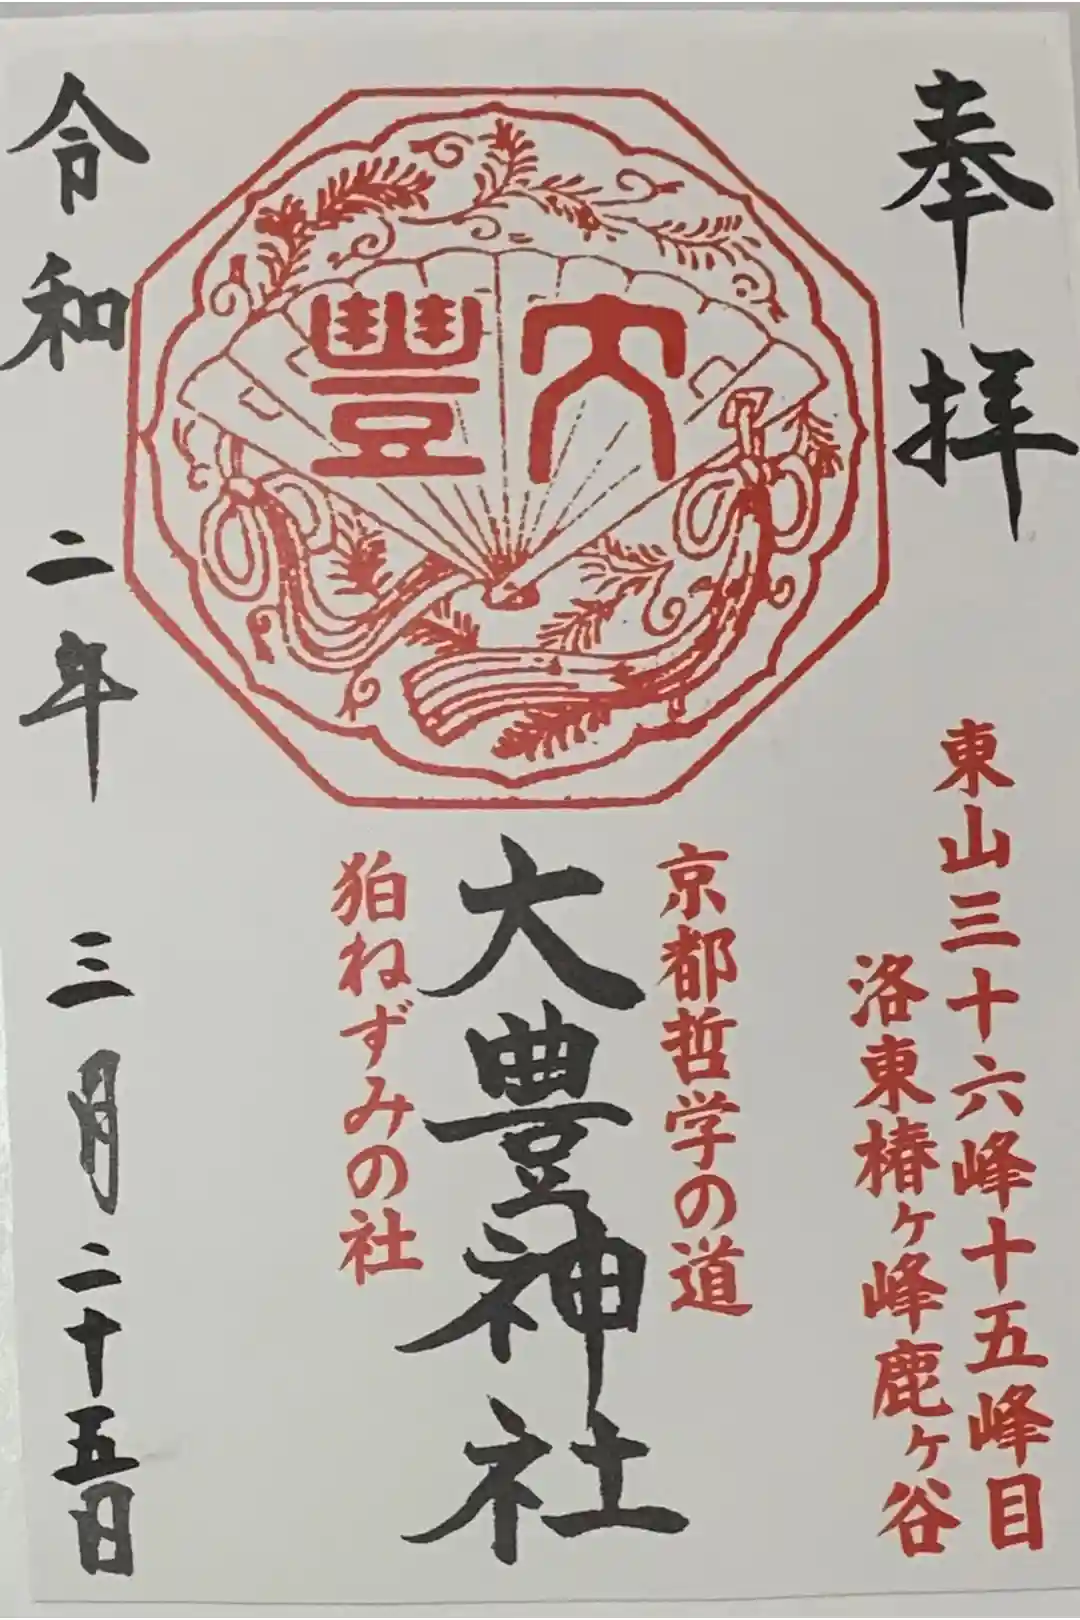 奉拝
東山三十六峰十五峰目
洛東椿ヶ峰鹿ヶ谷
大豐
京都哲学の道
大豊神社
狛ねずみの社
令和二年三月二十五日